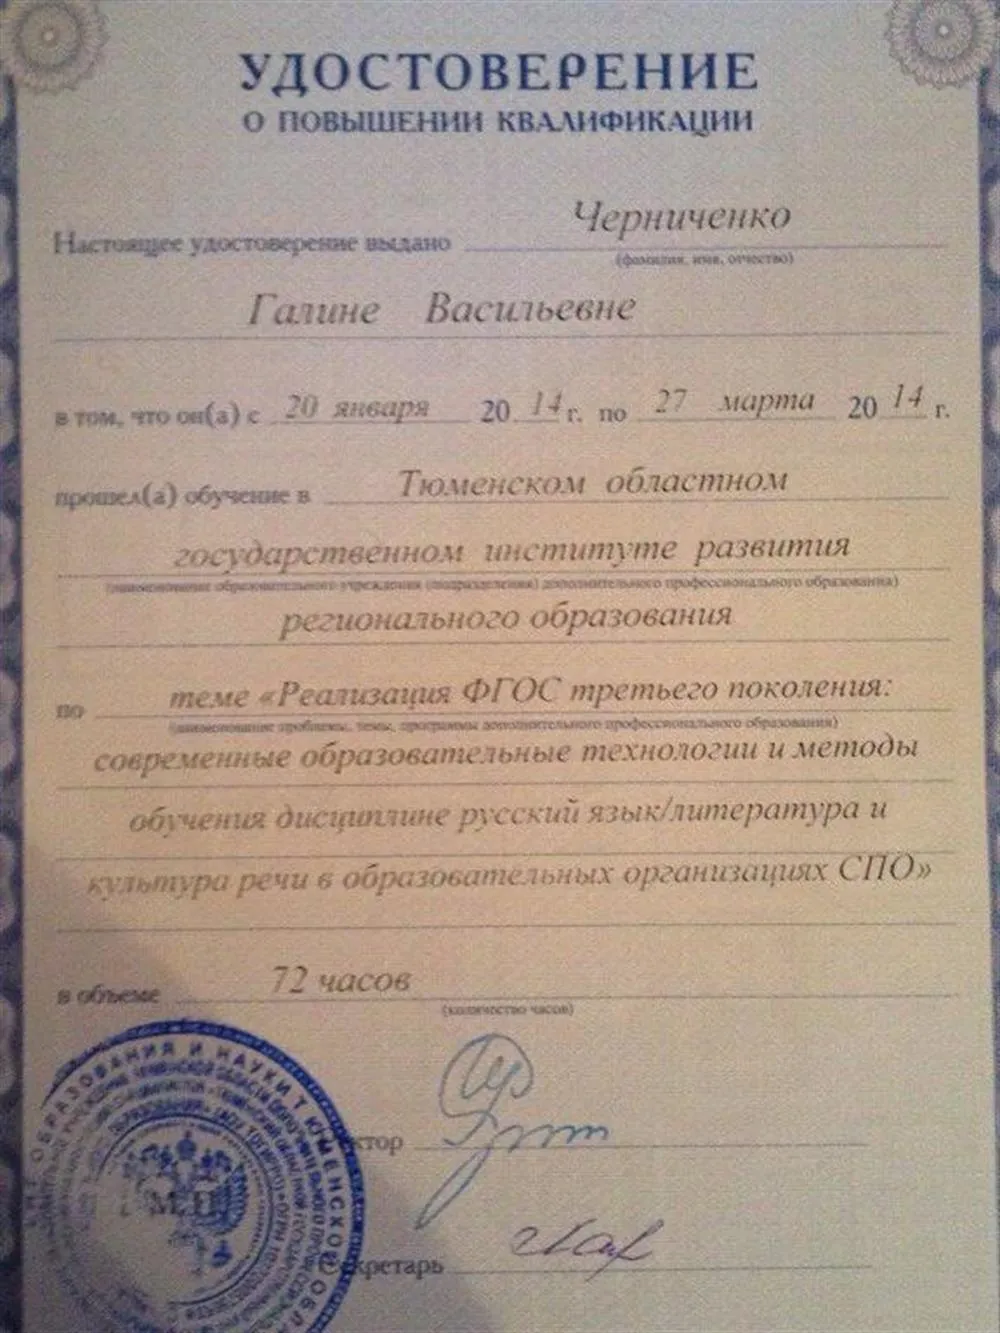 УДОСТОВЕРЕНИЕ
О ПОВЫШЕНИИ КВАЛИФИКАЦИИ
Настоящее удостоверение выдано Черниченко
(фамилия, имя, отчество)
Галине Васильевне
в том, что он(а) с 20 января 2014 г. по 27 марта 2014 г.
прошел(а) обучение в Тюменском областном
государственном институте развития
(наименование образовательного учреждения (подразделения) дополнительного профессионального образования)
регионального образования
по теме «Реализация ФГОС третьего поколения:
(наименование проблемы, темы, программы дополнительного профессионального образования)
современные образовательные технологии и методы
обучения дисциплине русский язык/литература и
культура речи в образовательных организациях СПО»
в объеме 72 часов
(количество часов)
ОБРАЗОВАНИЯ И НАУКИ ТЮМЕНСКОЙ
М.П.
Ректор
Секретарь